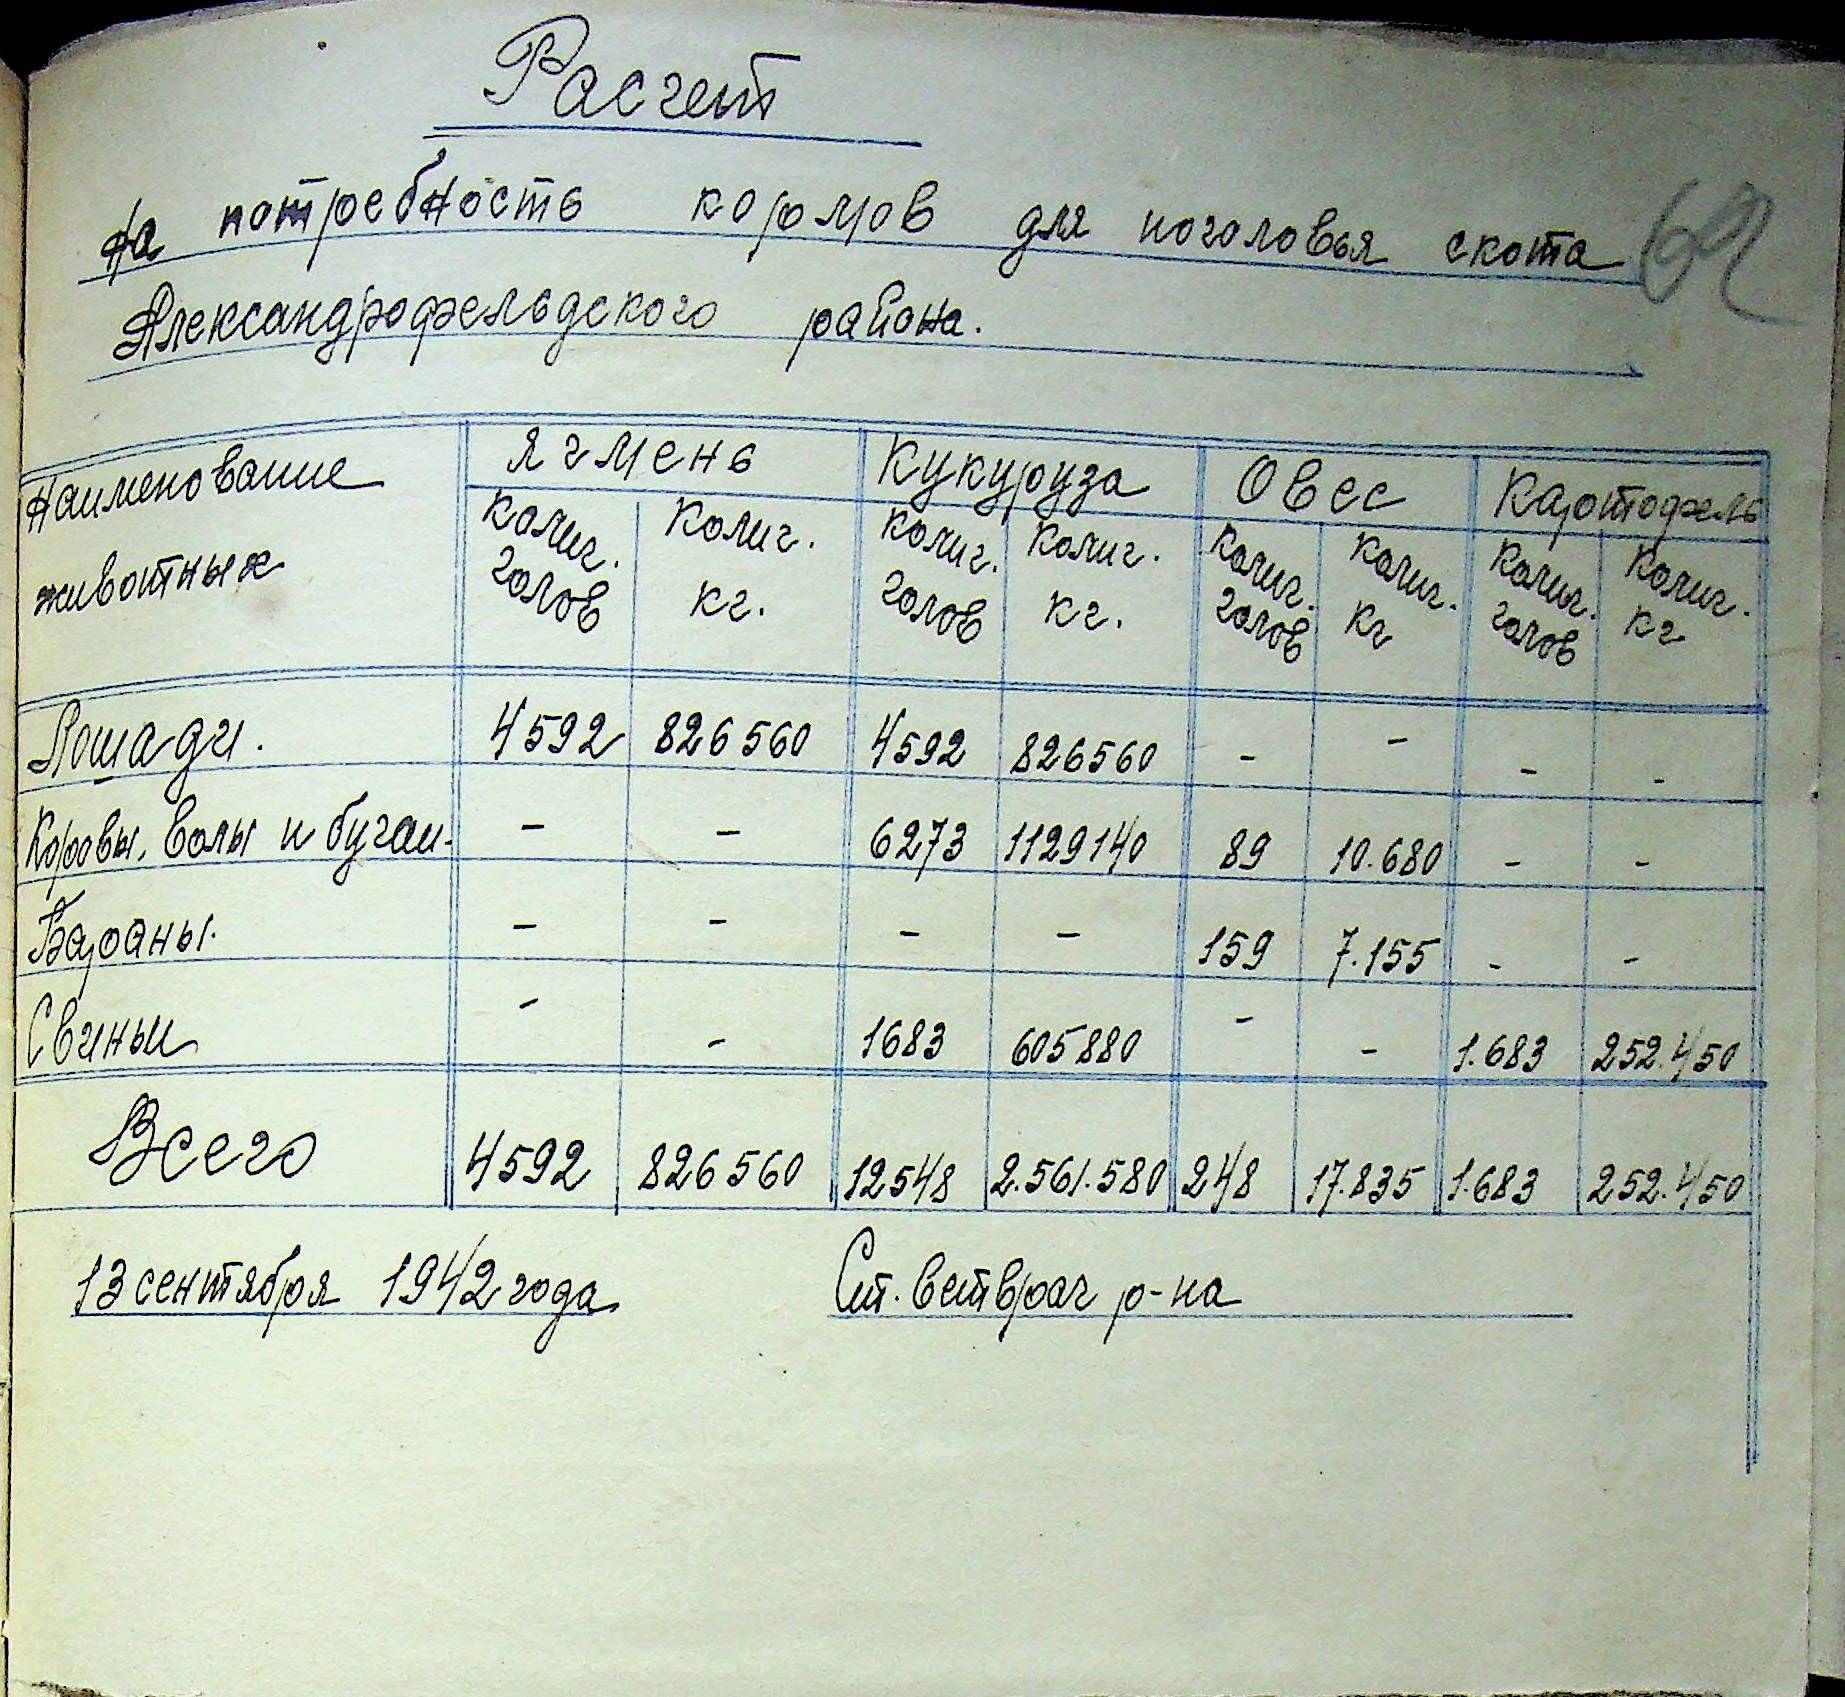 Расчет
на потребность кормов для поголовья скота
Александрофельдского района.
Наименование животных | Ячмень | Кукуруза | Овес | Картофель
Колич. голов | Колич. кг. | Колич. голов | Колич. кг. | Колич. голов | Колич. кг | Колич. голов | Колич. кг
Лошади. | 4592 | 826560 | 4592 | 826560 | - | - | - | -
Коровы, волы и бугаи. | - | - | 6273 | 1129140 | 89 | 10.680 | - | -
Бараны. | - | - | - | - | 159 | 7.155 | - | -
Свиньи | - | - | 1683 | 605880 | - | - | 1.683 | 252.450
Всего | 4592 | 826560 | 12548 | 2.561.580 | 248 | 17.835 | 1.683 | 252.450
13 сентября 1942 года Ст. ветврач р-на